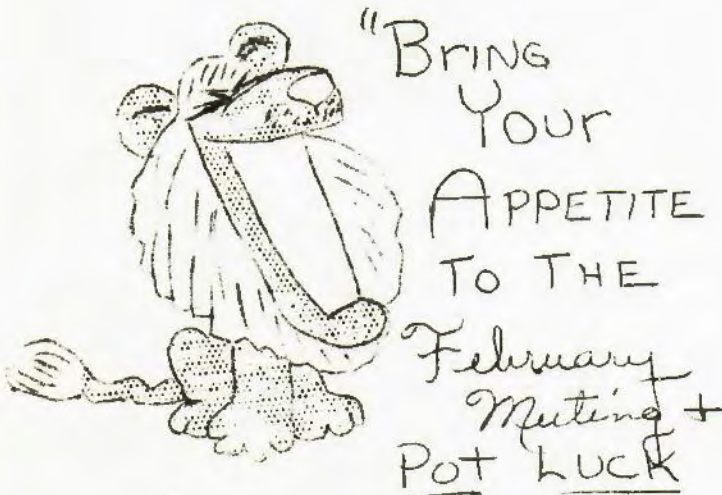 "BRING
YOUR
APPETITE
TO THE
February
Meeting +
POT LUCK